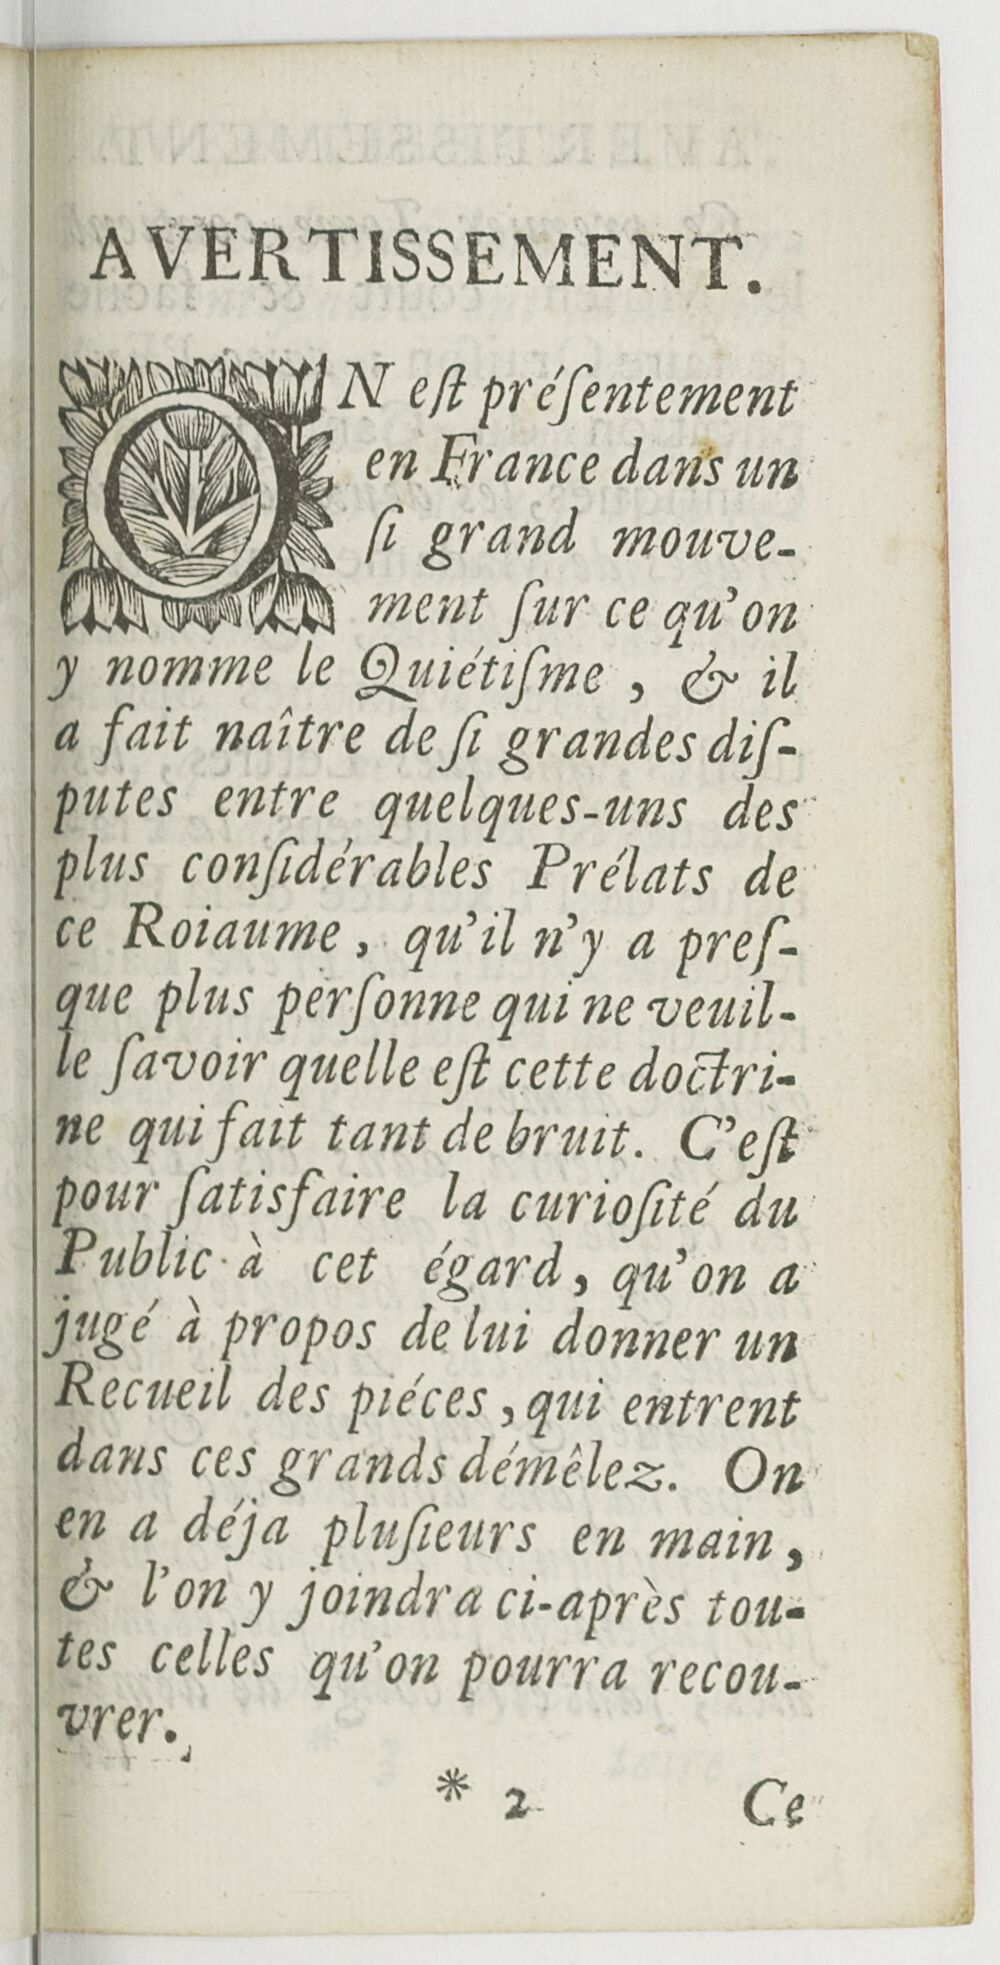 AVERTISSEMENT.
ON eſt préſentement
en France dans un
ſi grand mouve-
ment ſur ce qu'on
y nomme le Quiétiſme, & il
a fait naître de ſi grandes diſ-
putes entre quelques-uns des
plus conſidérables Prélats de
ce Roiaume, qu'il n'y a preſ-
que plus perſonne qui ne veuil-
le ſavoir quelle eſt cette doctri-
ne qui fait tant de bruit. C'eſt
pour ſatisfaire la curioſité du
Public à cet égard, qu'on a
jugé à propos de lui donner un
Recueil des piéces, qui entrent
dans ces grands démêlez. On
en a déja pluſieurs en main,
& l'on y joindra ci-après tou-
tes celles qu'on pourra recou-
vrer.
* 2 Ce